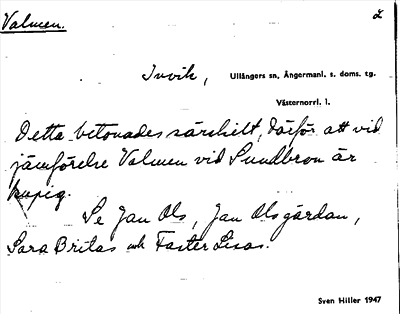 Valmen. 2
Invik, Ullångers sn, Ångermanl. s. doms. tg.
Västernorrl. l.
Detta betonades särskilt, därför att vid
jämförelse Valmen vid Sundbron är
kupig.
Se Jan Ols, Jan Olsgårdan,
Sara Britas och Faster Lisas.
Sven Hiller 1947